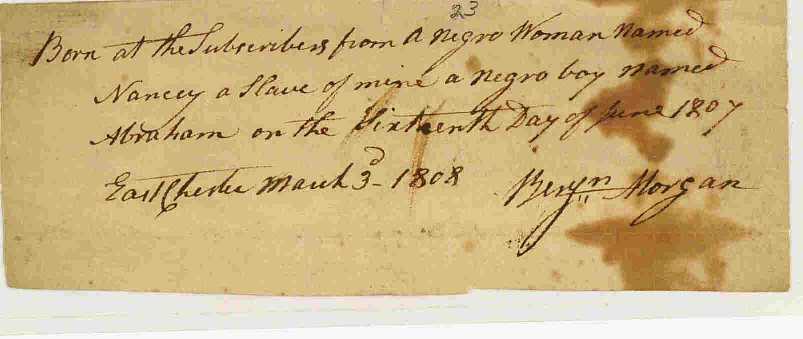 23
Born at the Subscribers from a Negro Woman Named
Nancey a Slave of mine a Negro boy named
Abraham on the Sixteenth Day of June 1807
EastChester March 3d 1808 Benjn Morgan